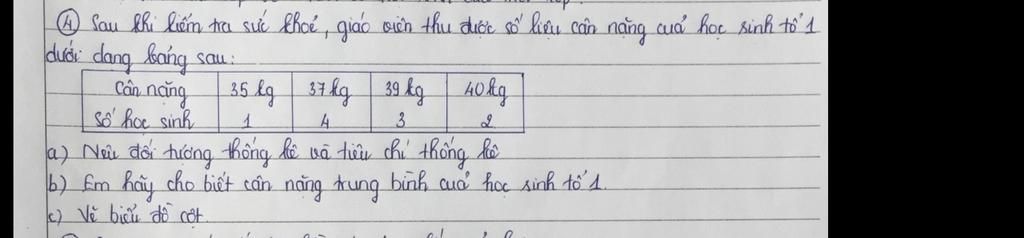 ④ Sau khi kiểm tra sức khoẻ, giáo viên thu được số liệu cân nặng cuả học sinh tổ 1
dưới dạng bảng sau:
Cân nặng 35 kg 37 kg 39 kg 40 kg
Số học sinh 1 4 3 2
a) Nêu đối tượng thống kê và tiêu chí thống kê
b) Em hãy cho biết cân nặng trung bình cuả học sinh tổ 1.
c) Vẽ biểu đồ cột.